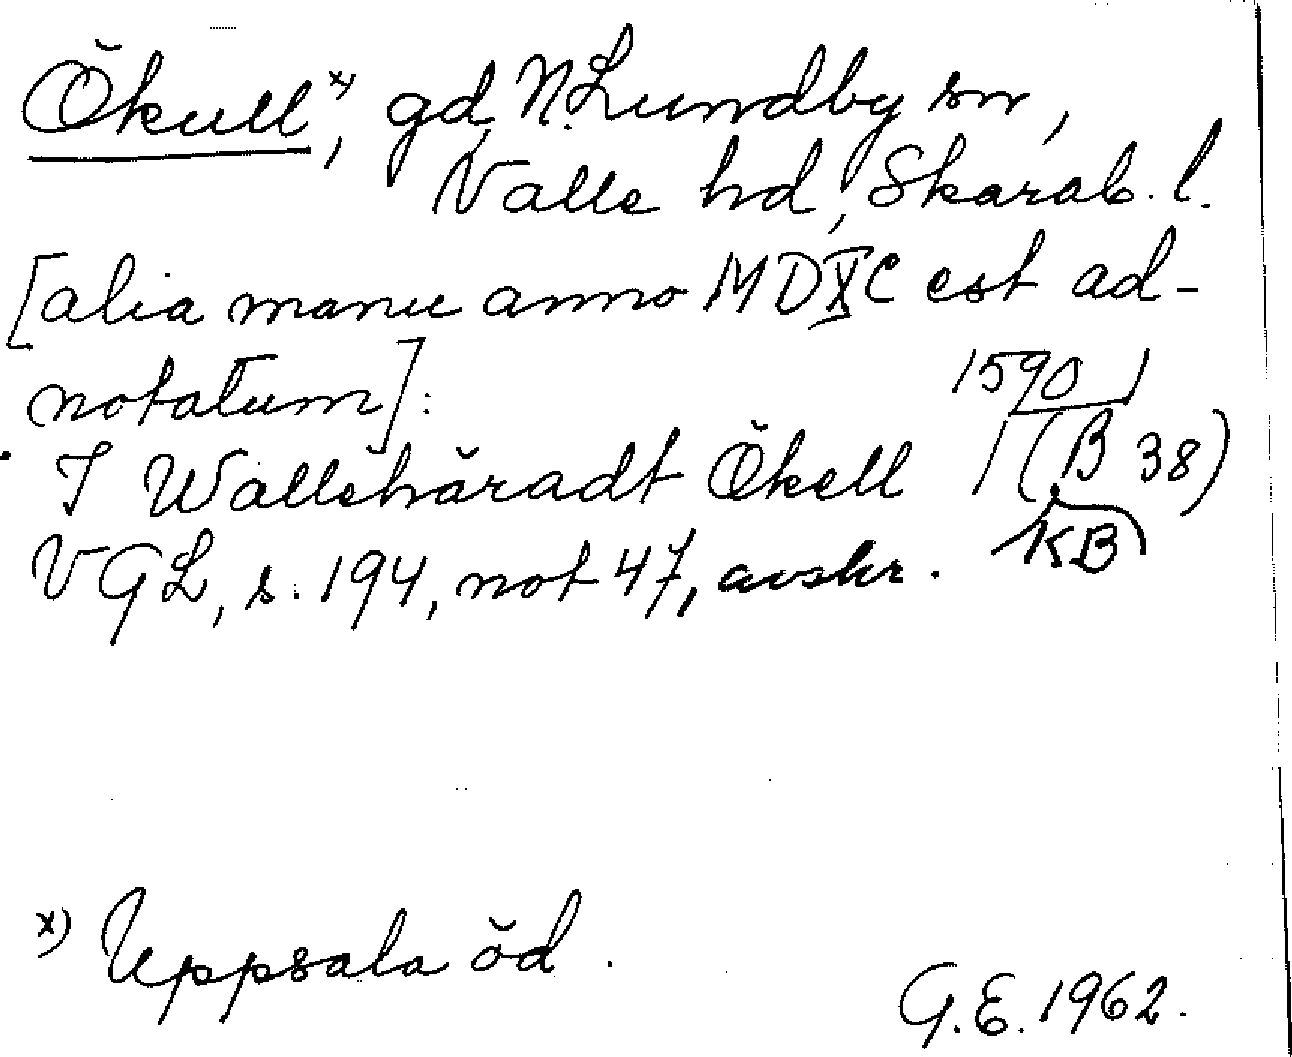 Ökull x), gd, N. Lundby sn,
Valle hd, Skarab. l.
[alia manu anno MDXC est ad-
notatum]: 1590
I Wallehäradt Ökell (B 38)
VGL, s. 194, not 47, avskr. KB
x) Uppsala öd.
G.E. 1962.